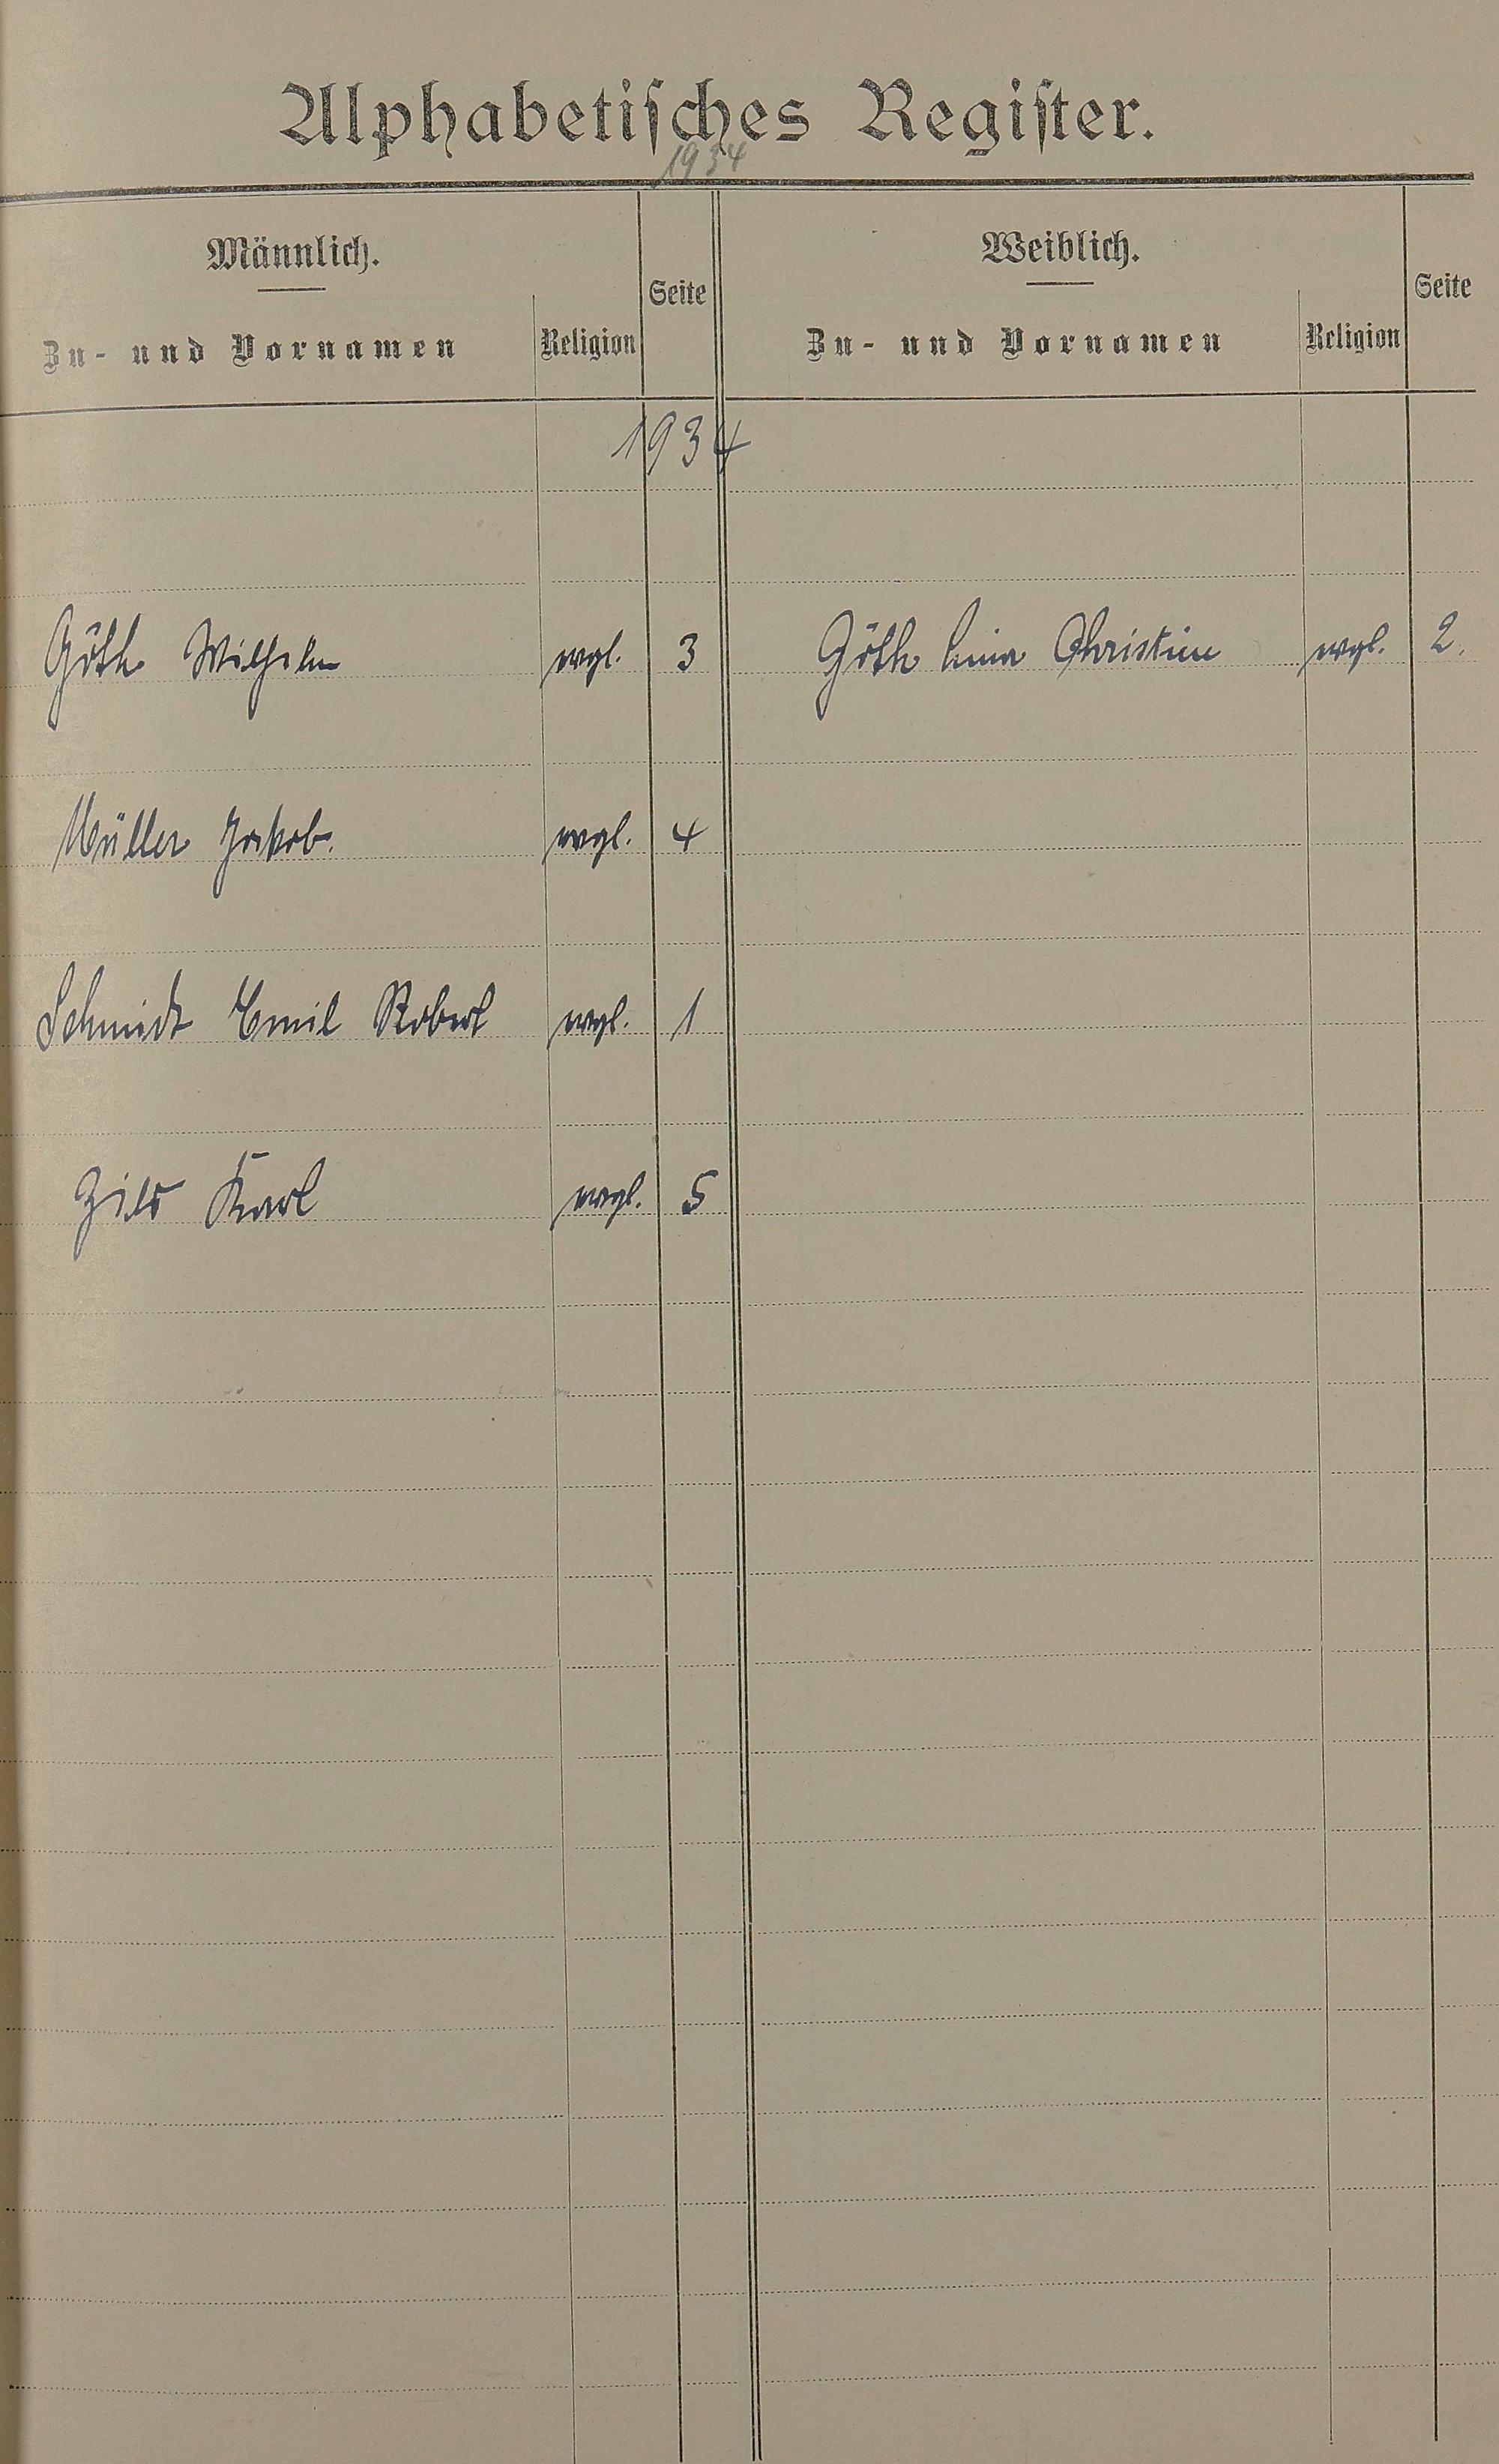 Alphabetisches Register.
1934
Männlich. Weiblich.
Zu- und Vornamen Religion Seite Zu- und Vornamen Religion Seite
1934
Göth Wilhelm evgl. 3 Göth Lina Christine evgl. 2.
Müller Jakob. evgl. 4
Schmidt Emil Robert evgl. 1
Karl evgl. 5